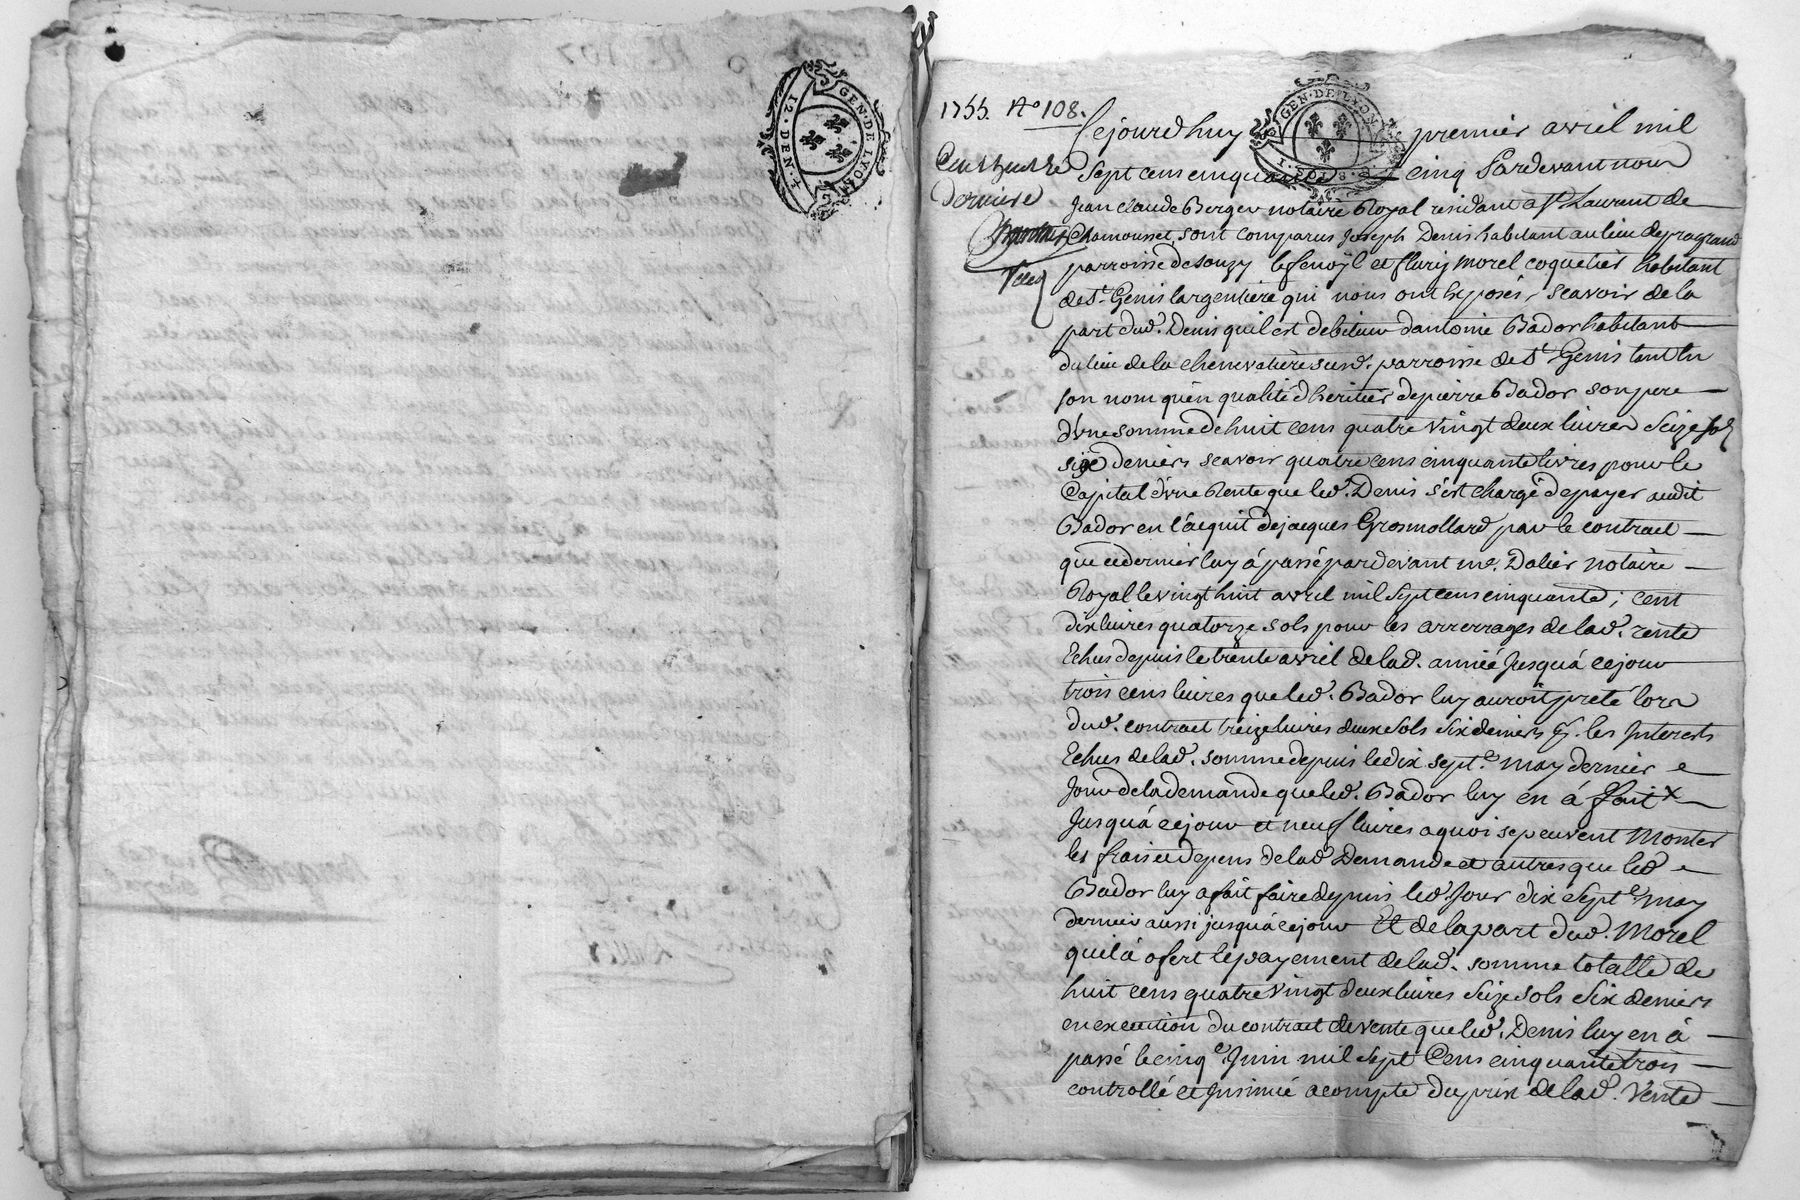 GEN. DE LYON
12. DEN. 4.
1755. No 108.
Cejourdhuy premier avril mil
GEN. DE LYON
Cent huitie
derniere
Sept cens cinquante cinq Pardevant nous
Jean claude Berger notaire Royal residant a St. Laurent de
Chamousset, sont comparus Joseph Denis habitant au lieu de pragrand
parroisse de souzy le fenoÿl et flury Morel coquetier habitant
de St. Genis largentiere qui nous ont Exposés, scavoir de la
part dud. Denis quil est debiteur dantoine Bador habitant
du lieu de la chenevatiere susd. parroisse de St. Genis tant En
son nom qu'en qualité d'heritier de pierre Bador son pere
d'vne somme de huit cens quatre vingt deux livres Seize sols
six deniers scavoir quatre cens cinquante livres pour le
Capital d'vne Rente que led. Denis s'est chargé de payer audit
Bador en l'acquit de jacques Grosmollard par le contract
que ce dernier luy á passé pardevant me. Dalier notaire
Royal le vingt huit avril mil sept cens cinquante; cent
dix livres quatorze sols pour les arrerrages de lad. rente
Echus depuis le trente avril de lad. année Jusquá ce jour
trois cens livres que led. Bador luy auroit preté lors
dud. contract treize livres deux sols six deniers p. les Interests
Echus de lad. somme depuis le dix sept.e may dernier
Jour de la demande que led. Bador luy en á fait x
Jusquá ce jour et neuf livres a quoi se peuvent Monter
les frais et depens de lad. Demande et autres que led.
Bador luy a fait faire depuis led. Jour dix sept.e may
dernier aussi jusquá ce jour Et de la part dud. Morel
quil á ofert le payement de lad. somme totalle de
huit cens quatre vingt deux livres Seize sols Six deniers
en execution du contract de vente que led. Denis luy en á
passé le cinq.e Juin mil sept Cens cinquante trois
controllé et Jnsinué acompte du prix de lad. Vente